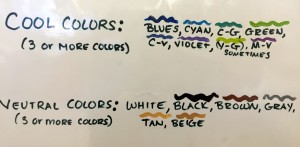 COOL COLORS: BLUES, CYAN, C-G, GREEN,
(3 OR MORE COLORS) C-V, VIOLET, (Y-G), M-V
SOMETIMES
NEUTRAL COLORS: WHITE, BLACK, BROWN, GRAY,
(3 OR MORE COLORS) TAN, BEIGE